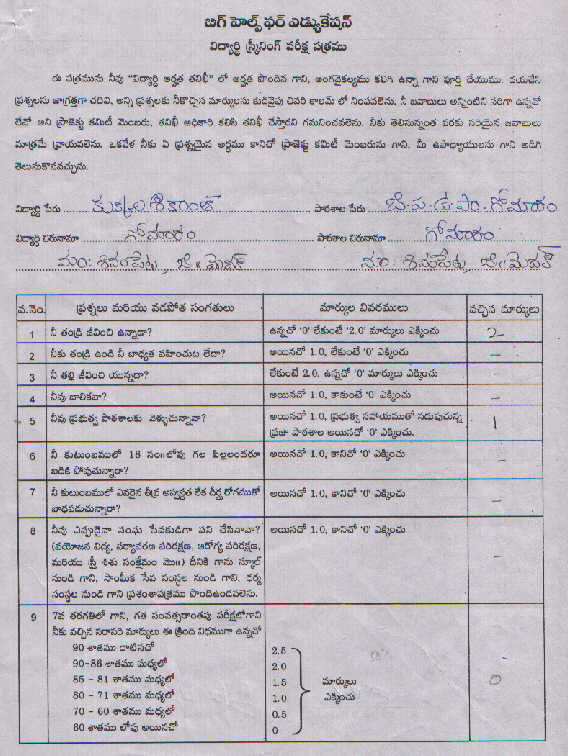 బిగ్ హెల్ప్ ఫర్ ఎడ్యుకేషన్
విద్యార్థి స్క్రీనింగ్ పరీక్ష పత్రము
ఈ పత్రమును నీవు "విద్యార్థి అర్హత తనిఖీ" లో అర్హత పొందిన గాని, అంగవైకల్యము కలిగి ఉన్నా గాని పూర్తి చేయుము. దయచేసి
ప్రశ్నలను జాగ్రత్తగా చదివి, అన్ని ప్రశ్నలకు నీకొచ్చిన మార్కులను కుడివైపు చివరి కాలమ్ లో నింపవలెను. నీ జవాబులు అన్నింటిని సరిగా ఉన్నవో
లేవో అని ప్రాజెక్టు కమిటీ మెంబరు, తనిఖీ అధికారి కలిసి తనిఖీ చేస్తారని గమనించవలెను. నీకు తెలిసినంత వరకు సరియైన జవాబులు
మాత్రమే వ్రాయవలెను. ఒకవేళ నీకు ఏ ప్రశ్నయైన అర్థము కానిచో ప్రాజెక్టు కమిటీ మెంబరును గాని, మీ ఉపాధ్యాయులను గాని అడిగి
తెలుసుకొనవచ్చును.
విద్యార్థి పేరు కుక్కల శ్రీకాంత్ పాఠశాల పేరు జి.ప.ఉ.పా. గోమారం
విద్యార్థి చిరునామా గోమారం పాఠశాల చిరునామా గోమారం
మం: శివంపేట, జి: మెదక్ మం: శివంపేట, జి: మెదక్
వ.నెం. ప్రశ్నలు మరియు వడపోత సంగతులు మార్కుల వివరములు వచ్చిన మార్కులు
1 నీ తండ్రి జీవించి ఉన్నాడా? ఉన్నచో '0' లేకుంటే '2.0' మార్కులు ఎక్కించు 2
2 నీకు తండ్రి ఉండి నీ బాధ్యత వహించుట లేదా? అయినచో 1.0, లేకుంటే '0' ఎక్కించు –
3 నీ తల్లి జీవించి యున్నదా? లేకుంటే 2.0, ఉన్నచో '0' మార్కులు ఎక్కించు –
4 నీవు బాలికవా? అయినచో 1.0, కాకుంటే '0' ఎక్కించు –
5 నీవు ప్రభుత్వ పాఠశాలకు వెళ్ళుచున్నావా? అయినచో 1.0, ప్రభుత్వ సహాయముతో నడుపుచున్న 1
ప్రజా పాఠశాల అయినచో '0' ఎక్కించు.
6 నీ కుటుంబములో 18 సం॥లోపు గల పిల్లలందరూ అయినచో 1.0, కానిచో '0' ఎక్కించు –
బడికి పోవుచున్నారా?
7 నీ కుటుంబములో ఎవరైన తీవ్ర అస్వస్థత లేక దీర్ఘ రోగముతో అయినచో 1.0, కానిచో '0' ఎక్కించు –
బాధపడుచున్నారా?
8 నీవు ఎప్పుడైనా సంఘ సేవకుడిగా పని చేసినావా? అయినచో 1.0, కానిచో '0' ఎక్కించు –
(వయోజన విద్య, పర్యావరణ పరిరక్షణ, ఆరోగ్య పరిరక్షణ,
మరియు స్త్రీ శిశు సంక్షేమం మొ॥) దీనికి గాను స్కూల్
నుండి గాని, సాంఘిక సేవ సంస్థల నుండి గాని, ధర్మ
సంస్థల నుండి గాని ప్రశంశాపత్రము పొందిఉండవలెను.
9 7వ తరగతిలో గాని, గత సంవత్సరాంతపు పరీక్షలోగాని
నీకు వచ్చిన సరాసరి మార్కులు ఈ క్రింది విధముగా ఉన్నచో
90 శాతము దాటినచో 2.5
90-86 శాతము మధ్యలో 2.0
85 – 81 శాతము మధ్యలో 1.5 మార్కులు 0
80 – 71 శాతము మధ్యలో 1.0 ఎక్కించు
70 – 60 శాతము మధ్యలో 0.5
60 శాతము లోపు అయినచో 0